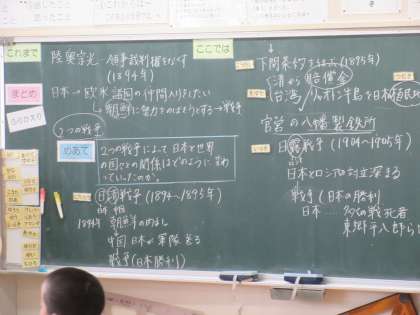 これまで
まとめ
ふりかえり
ここでは
陸奥宗光→領事裁判権をなくす
(1894年)
日本→欧米諸国の仲間入りをしたい
↳朝鮮に勢力をのばそうとする→戦争
2つの戦争
めあて
2つの戦争によって日本と世界
の国々との関係はどのように変わ
っていったのか。
日清戦争(1894〜1895年)
1894年 朝鮮
中国 日本が軍隊送る
戦争(日本勝利)
下関条約 (1895年)
清から賠償金
台湾 リャオトン半島を日本
官営の八幡製鉄所
日露戦争(1904〜1905年)
日本とロシアの対立深まる
戦争(日本の勝利)
日本…多数戦死者
東郷平八郎ら